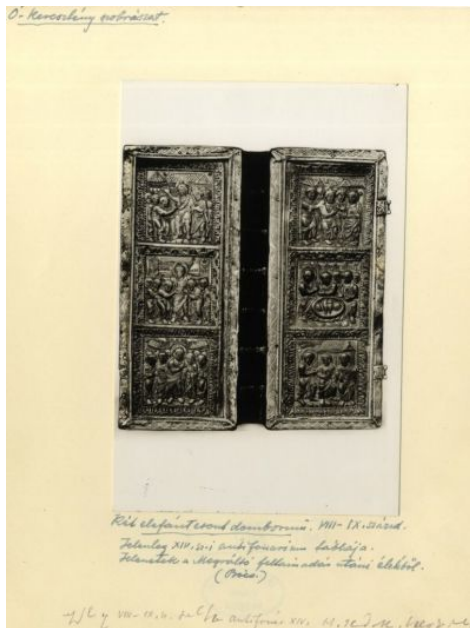 Ó-Keresztény szobrászat.
Két elefántcsont dombormű. VIII-IX. század.
Jelenleg XIV. sz-i antifonárium táblája.
Jelenetek a Megváltó feltámadás utáni életéből.
(Bécs.)
VIII-IX. sz. antifonás XIV.